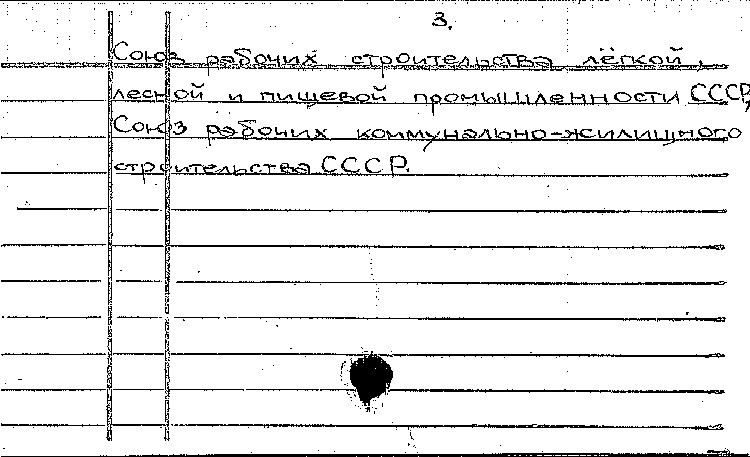 3.
Союз рабочих строительства лёгкой,
лесной и пищевой промышленности СССР,
Союз рабочих коммунально-жилищного
строительства СССР.